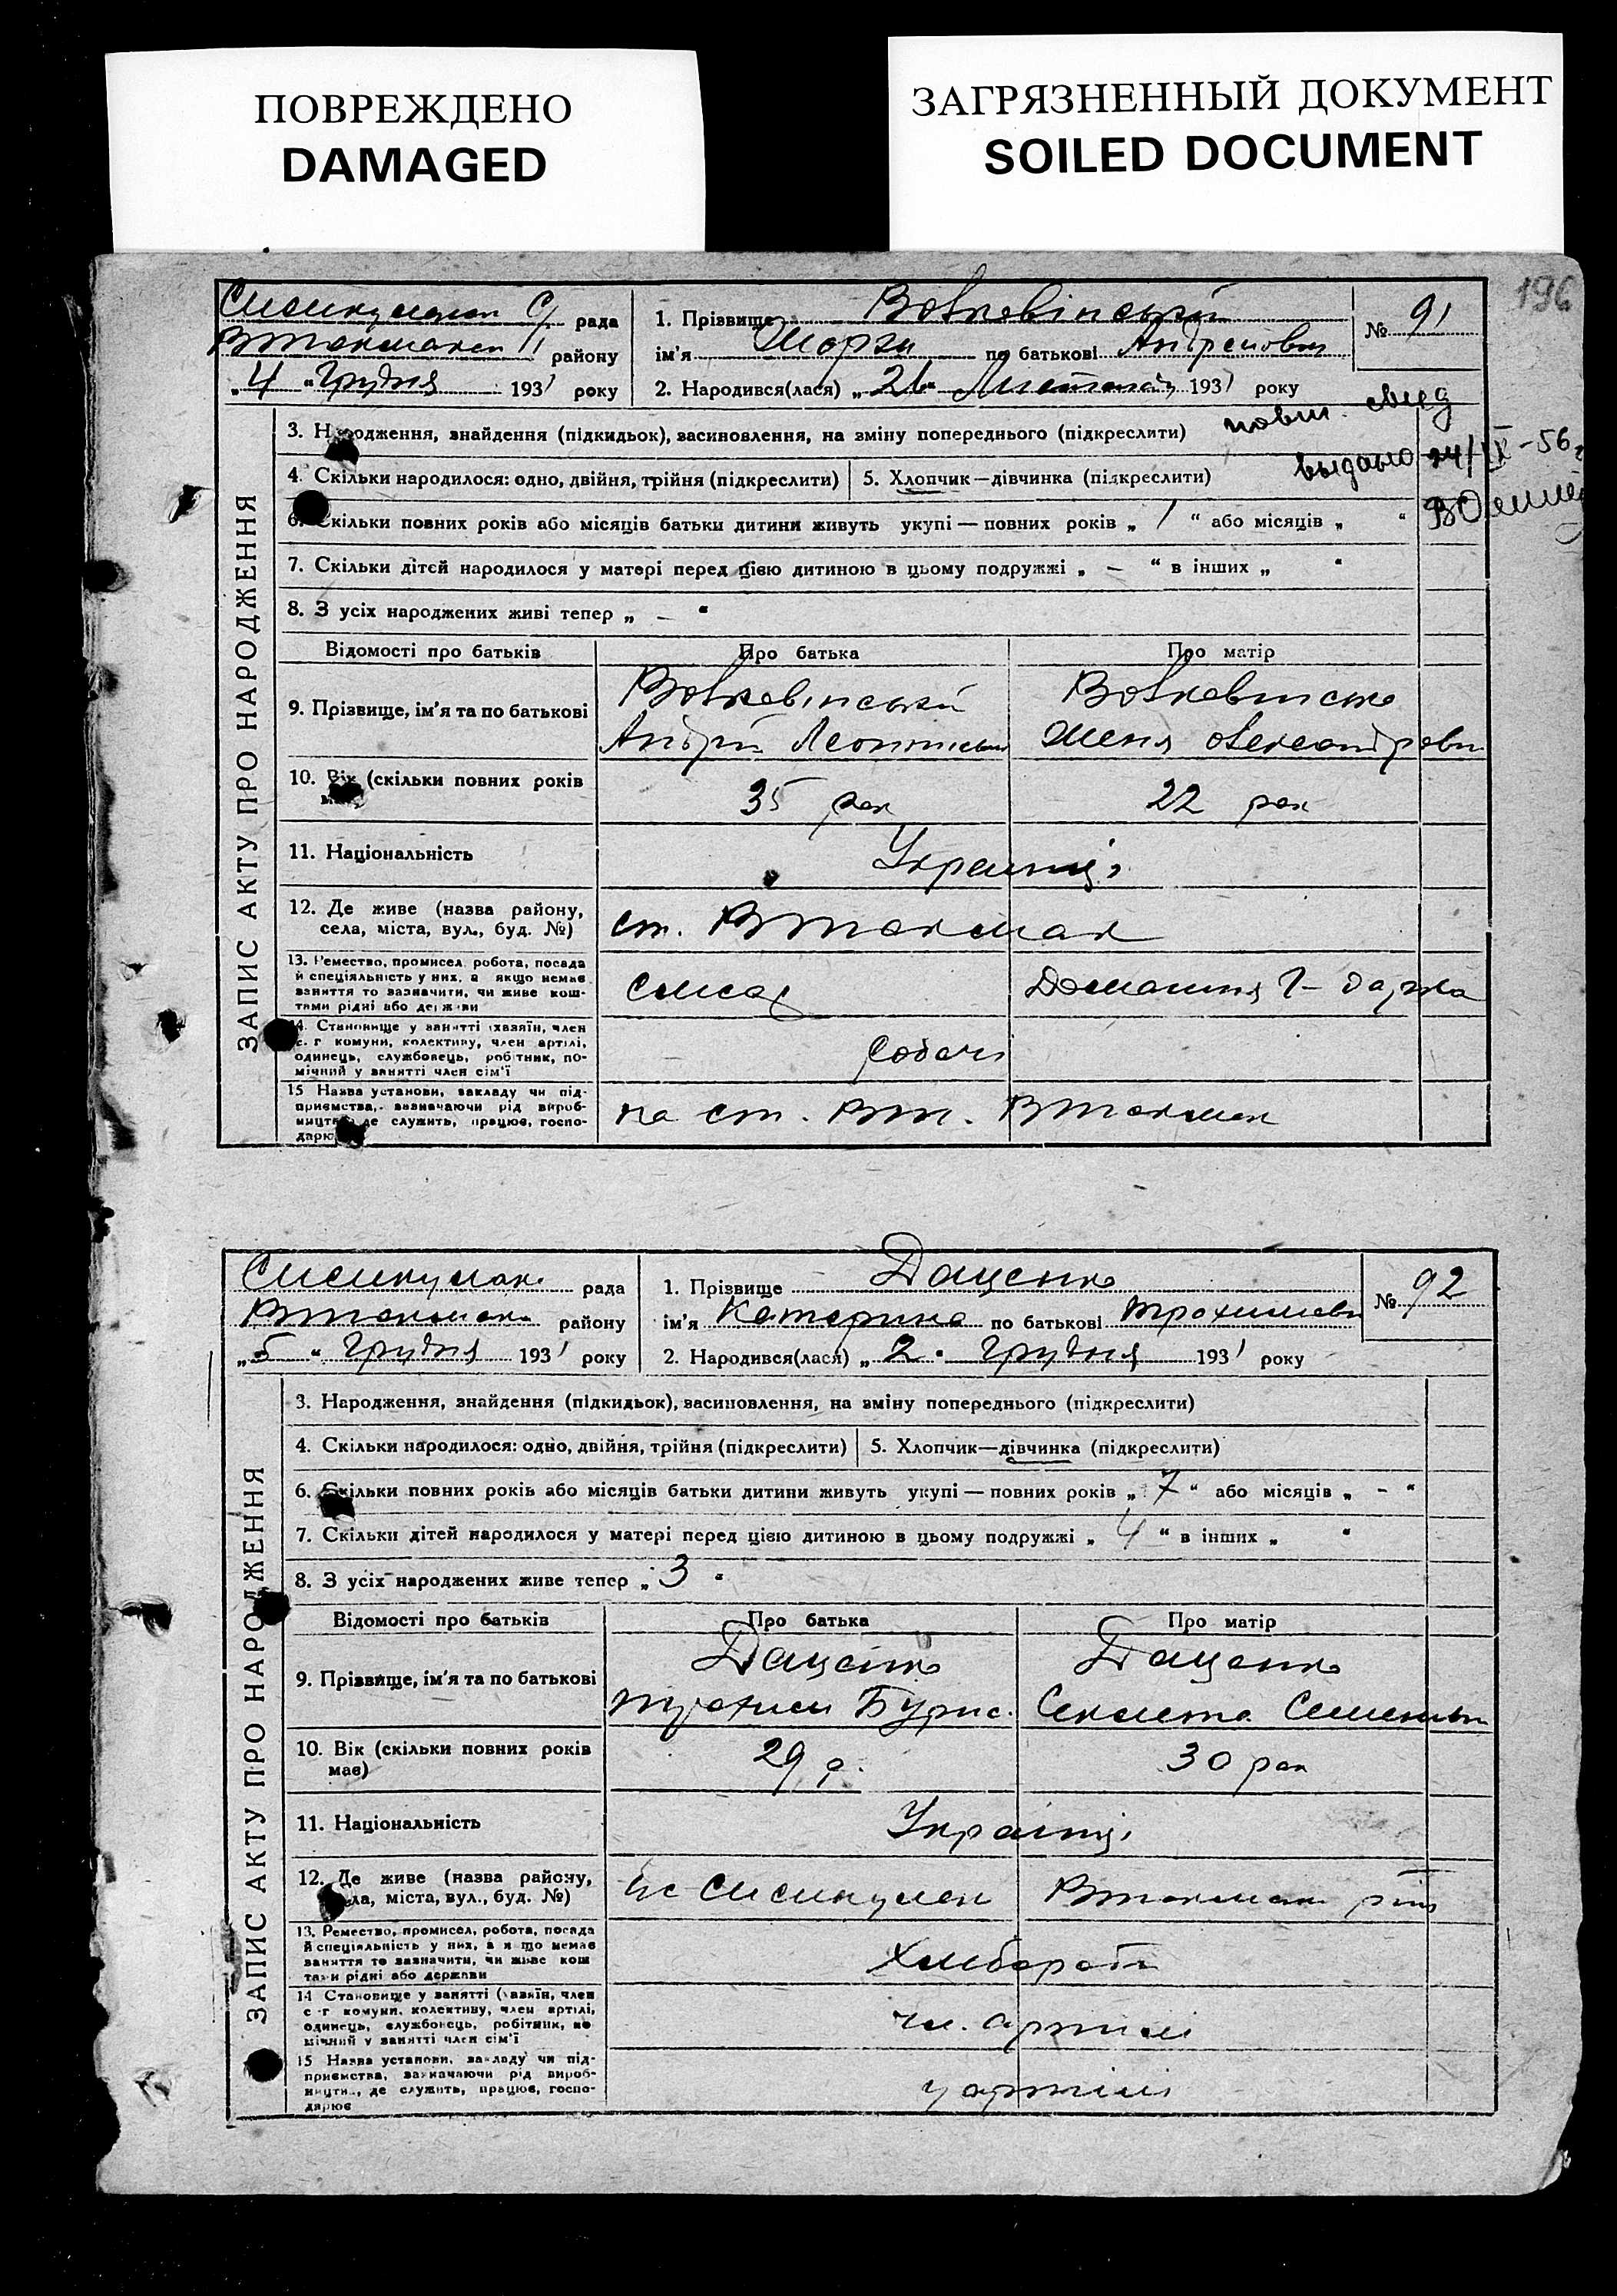 ПОВРЕЖДЕНО
DAMAGED
ЗАГРЯЗНЕННЫЙ ДОКУМЕНТ
SOILED DOCUMENT
196
рада
району
„4“ Грудня 1931 року
1. Прізвище Вовковінський
ім'я по батькові Андрейович
2. Народився(лася) „26“ Листопада 1931 року
№ 91
повт. свид
выдано 24/IX-56г
ЗАПИС АКТУ ПРО НАРОДЖЕННЯ
3. Народження, знайдення (підкидьок), засиновлення, на зміну попереднього (підкреслити)
4. Скільки народилося: одно, двійня, трійня (підкреслити) 5. Хлопчик—дівчинка (підкреслити)
6. Скільки повних років або місяців батьки дитини живуть укупі — повних років „ 1 “ або місяців „ “
7. Скільки дітей народилося у матері перед цією дитиною в цьому подружжі „ — “ в інших „ “
8. З усіх народжених живі тепер „ — “
Відомості про батьків Про батька Про матір
9. Прізвище, ім'я та по батькові
Вовковінський Вовковинська
Андрій
10. Вік (скільки повних років
35 рок 22 рок
11. Національність Українці
12. Де живе (назва району,
села, міста, вул., буд. №)
ст. ВТокмак
13. Ремество, промисел, робота, посада
й спеціяльність у них, а якщо немає
заняття то зазначити, чи живе кош-
тами рідні або держави
Слюсар Домашня
14. Становище у занятті (хазяїн, член
с. г комуни, колективу, член артілі,
одинець, службовець, робітник, по-
мічний у занятті член сім'ї
15 Назва установи, закладу чи під-
приємства, зазначаючи рід вироб-
ництва де служить, працює, госпо-
дарює
на ст. ВТ. ВТокмак
рада
району
„5“ Грудня 1931 року
1. Прізвище Даценко
ім'я Катерина по батькові Трохимовн
2. Народився(лася) „2“ Грудня 1931 року
№ 92
ЗАПИС АКТУ ПРО НАРОДЖЕННЯ
3. Народження, знайдення (підкидьок), засиновлення, на зміну попереднього (підкреслити)
4. Скільки народилося: одно, двійня, трійня (підкреслити) 5. Хлопчик—дівчинка (підкреслити)
6. Скільки повних років або місяців батьки дитини живуть укупі — повних років „ 7 “ або місяців „ - “
7. Скільки дітей народилося у матері перед цією дитиною в цьому подружжі „ 4 “ в інших „ “
8. З усіх народжених живе тепер „ 3 “
Відомості про батьків Про батька Про матір
9. Прізвище, ім'я та по батькові
Даценко Даценко
Трохим
10. Вік (скільки повних років
має)
29 р. 30 рок
11. Національність Українці
12. Де живе (назва району,
села, міста, вул., буд. №)
13. Ремество, промисел, робота, посада
й спеціяльність у них, а якщо немає
заняття то зазначити, чи живе кош
тами рідні або держави
Хлібороби
14 Становище у занятті (хазяїн, член
с-г комуни, колективу, член артілі,
одинець, службовець, робітник, по
мічний у занятті член сім'ї
чл. артілі
15 Назва установи, закладу чи під-
приємства, зазначаючи рід вироб-
ництва, де служить, працює, госпо-
дарює
у артілі